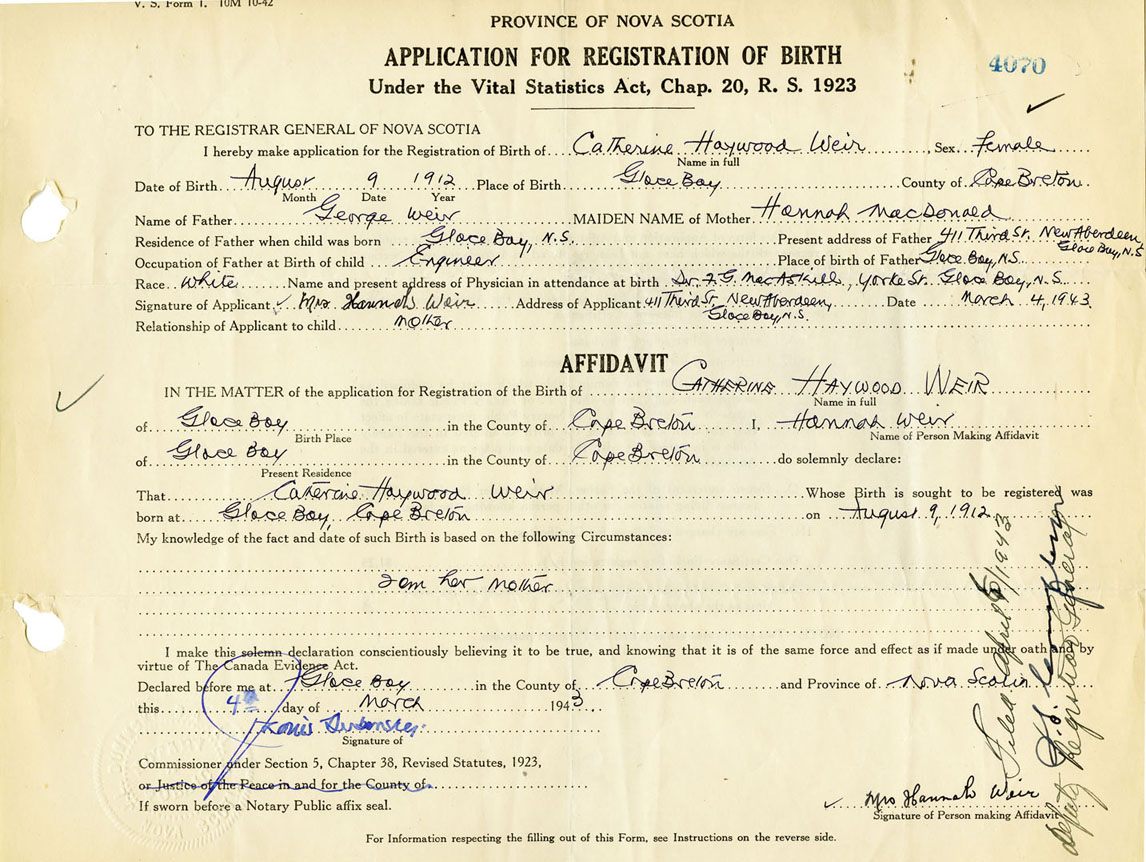 V. S. Form 1. 10M 10-42
PROVINCE OF NOVA SCOTIA
APPLICATION FOR REGISTRATION OF BIRTH
4070
Under the Vital Statistics Act, Chap. 20, R. S. 1923
TO THE REGISTRAR GENERAL OF NOVA SCOTIA
I hereby make application for the Registration of Birth of Catherine Haywood Weir, Sex Female
Name in full
Date of Birth August 9 1912 Place of Birth Glace Bay County of Cape Breton
Month Date Year
Name of Father George Weir MAIDEN NAME of Mother Hannah MacDonald
Residence of Father when child was born Glace Bay, N.S. Present address of Father 411 Third St. New Aberdeen
Glace Bay, N.S
Occupation of Father at Birth of child Engineer Place of birth of Father Glace Bay, N.S.
Race White Name and present address of Physician in attendance at birth Dr. F. G. MacAskill, Yorke St. Glace Bay, N.S.
Signature of Applicant Mrs Hannah Weir Address of Applicant 411 Third St, New Aberdeen, Date March 4, 1943
Glace Bay, N.S.
Relationship of Applicant to child Mother
AFFIDAVIT
IN THE MATTER of the application for Registration of the Birth of CATHERINE HAYWOOD WEIR
Name in full
of Glace Bay in the County of Cape Breton I, Hannah Weir
Birth Place Name of Person Making Affidavit
of Glace Bay in the County of Cape Breton do solemnly declare:
Present Residence
That Catherine Haywood Weir Whose Birth is sought to be registered was
born at Glace Bay, Cape Breton on August 9, 1912
My knowledge of the fact and date of such Birth is based on the following Circumstances:
I am her mother
I make this solemn declaration conscientiously believing it to be true, and knowing that it is of the same force and effect as if made under oath and by
virtue of The Canada Evidence Act.
Declared before me at Glace Bay in the County of Cape Breton and Province of Nova Scotia
this 4th day of March 1943
Louis
Signature of
Commissioner under Section 5, Chapter 38, Revised Statutes, 1923,
or Justice of the Peace in and for the County of
If sworn before a Notary Public affix seal.
Mrs Hannah Weir
Signature of Person making Affidavit
For Information respecting the filling out of this Form, see Instructions on the reverse side.
Filed April 1943
deputy Registrar General